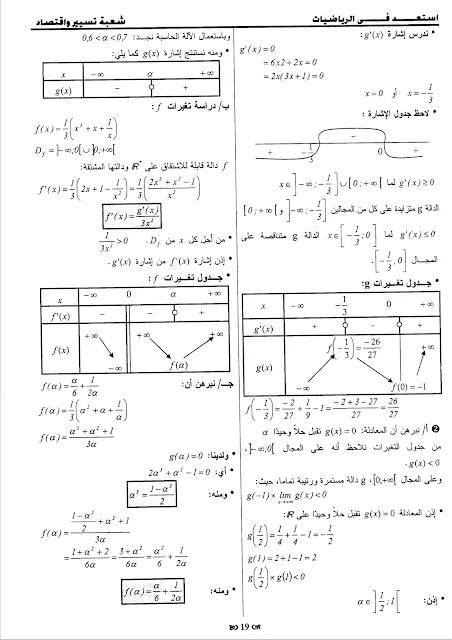 استعد فى الرياضيات
شعبة تسيير واقتصاد
• ندرس إشارة g'(x):
g'(x) = 0
= 6x2 + 2x = 0
= 2x(3x + 1) = 0
x = 0 أو x = -1/3
• لاحظ جدول الإشارة:
+ -1/3 - 0 +
x ∈ ]-∞; -1/3] ∪ [0; +∞[ لما g'(x) ≥ 0
الدالة g متزايدة على كل من المجالين ]-∞; -1/3] و [0; +∞[
g'(x) ≤ 0 لما x ∈ [-1/3; 0] الدالة g متناقصة على
المجال [-1/3; 0].
• جدول تغيرات g:
x -∞ -1/3 0 +∞
g'(x) + - +
g(x) -∞ f(-1/3) = -26/27 f(0) = -1 +∞
f(-1/3) = -2/27 + 1/9 - 1 = (-2 + 3 - 27)/27 = 26/27
❷ أ/ نبرهن أن المعادلة: g(x) = 0 تقبل حلاً وحيدًا α
من جدول التغيرات نلاحظ أنه على المجال ]-∞; 0]،
g(x) < 0.
وعلى المجال [0; +∞[، g دالة مستمرة ورتيبة تماما، حيث:
g(-1) × lim g(x) < 0
• إذن المعادلة g(x) = 0 تقبل حلاً وحيدًا على ℝ:
g(1/2) = 1/4 + 1/4 - 1 = -1/2
g(1) = 2 + 1 - 1 = 2
g(1/2) × g(1) < 0
• إذن: α ∈ ]1/2; 1[
وباستعمال الآلة الحاسبة نجد: 0,6 < α < 0,7
• ومنه نستنتج إشارة g(x) كما يلي:
x -∞ α +∞
g(x) - +
ب/ دراسة تغيرات f:
f(x) = 1/3 (x² + x + 1/x)
D_f = ]-∞; 0[ ∪ ]0; +∞[
f دالة قابلة للاشتقاق على ℝ* ودالتها المشتقة:
f'(x) = 1/3 (2x + 1 - 1/x²) = 1/3 ((2x³ + x² - 1)/x²)
f'(x) = g'(x)/3x²
• من أجل كل x من D_f، 1/3x² > 0
• إذن إشارة f'(x) من إشارة g'(x).
• جدول تغيرات f:
x -∞ 0 α +∞
f'(x) - - +
f(x) +∞ -∞ +∞ f(α) +∞
جـ/ نبرهن أن: f(α) = α/6 + 1/2α
f(α) = 1/3 (α² + α + 1/α)
f(α) = (α³ + α² + 1)/3α
• ولدينا: g(α) = 0
• أي: 2α³ + α² - 1 = 0
• ومنه: α³ = (1 - α²)/2
f(α) = ((1 - α²)/2 + α² + 1)/3α
= (1 + α² + 2)/6α = (3 + α²)/6α = α/6 + 1/2α
• ومنه: f(α) = α/6 + 1/2α
19